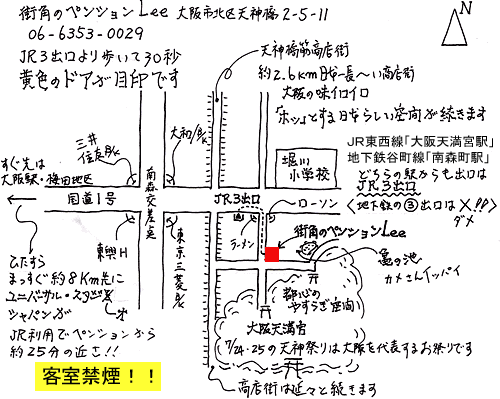 街角のペンションLee 大阪市北区天神橋2-5-11
06-6353-0029
JR3出口より歩いて30秒
黄色のドアが目印です
N
天神橋筋商店街
約2.6km日本一長〜い商店街
大阪の味イロイロ
「ホッ」とする日本らしい空間が続きます
JR東西線「大阪天満宮駅」
地下鉄谷町線「南森町駅」
どちらの駅からも出口は
JR3出口
〈地下鉄の③出口は×!!〉
ダメ
三井
住友Bk
大和Bk
堀川
小学校
すぐ先は
大阪駅・梅田地区
国道1号
南森交差点
JR3出口
ローソン
ラーメン
街角のペンションLee
亀の池
カメさんイッパイ
東興H
東京三菱Bk
都心の
やすらぎ空間
大阪天満宮
ひたすら
まっすぐ約8Km先に
ユニバーサル・スタジオ
ジャパンが
JR利用でペンションから
約25分の近さ!!
7/24・25の天神祭りは大阪を代表するお祭りです
客室禁煙！！
商店街は延々と続きます